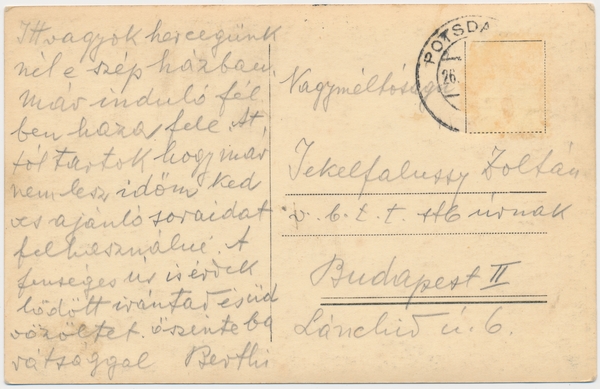 Itt vagyok hercegünk
nél e szép házban.
Már induló fél
ben haza fele. At
tól tartok hogy már
nem lesz időm ked
ves ajánló soraidat
felhasználni. A
fenséges úr is érdek
lődött irántad és üd
vözöltet. őszinte ba
rátsággal Berthi
POTSDA
26.
Nagyméltóságu
Jekelfalussy Zoltán
v. b. t. t. úrnak
Budapest II
Lánchid ú. 6.